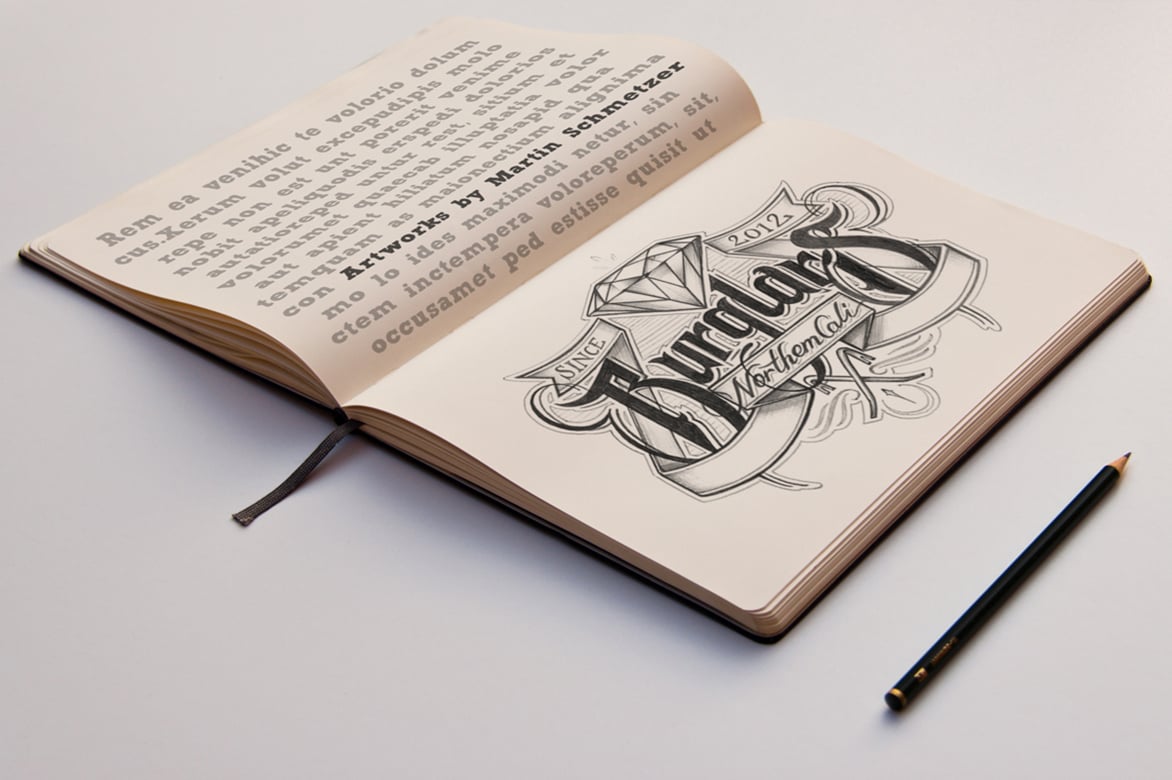 Rem ea venihic te volorio dolum
cus.Xerum volut excepudipis molo
repe non est unt porerit venime
nobit apeliquodis erspedi dolorios
autatioreped untur rest, sitium et
volorumet quaecab illuptatia volor
aut apient hiliatum nosapid qua
temquam as maionectium alignima
con Artworks by Martin Schmetzer
mo lo ides maximodi netur, sin
ctem inctempera voloreperum, sit,
occusamet ped estisse quisit ut
SINCE
2012
Burglars
Northern Cali